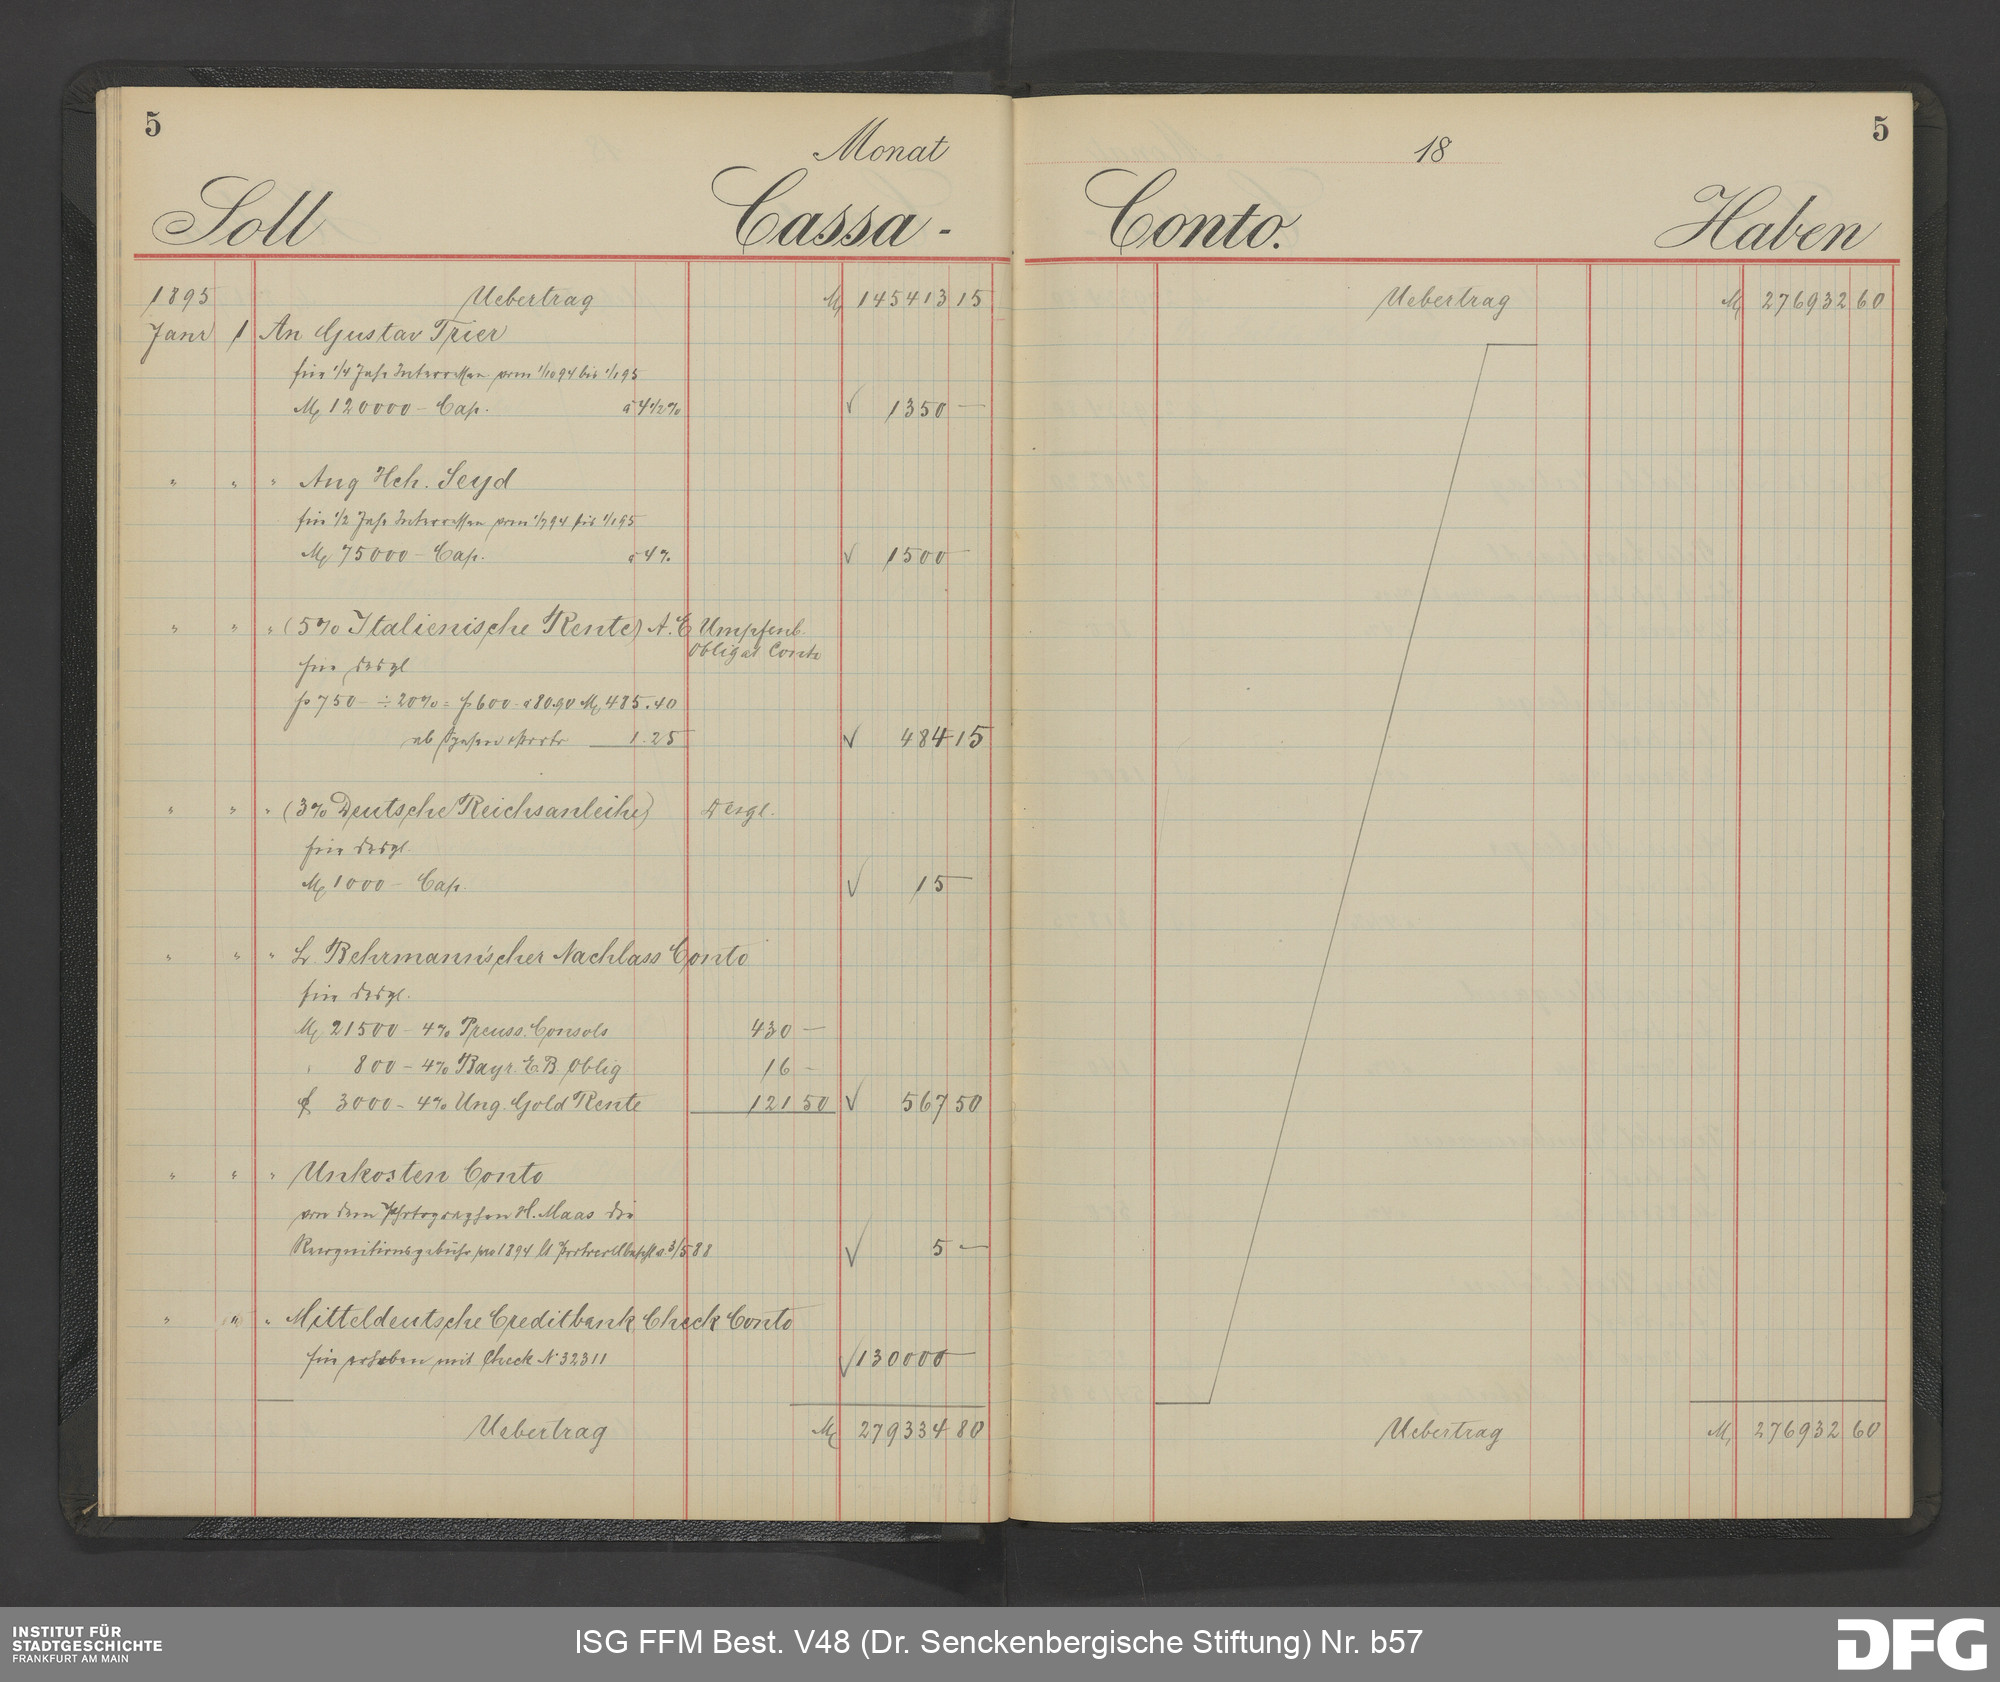 5
Monat
Soll Cassa-
1895 Uebertrag M 145413 15
Janr 1 An Gustav Trier
für 1/4 Jahr Interessen vom 1/10 94 bis 1/1 95
M 120000 – Cap. à 4 1/2 % √ 1350 —
" " " Aug Hch. Seyd
für 1/2 Jahr Interessen vom 1/7 94 bis 1/1 95
M 75000 – Cap. à 4% √ 1500 —
" " " (5% Italienische Rente) A. E Umpfenb.
Obligat Conto
für desgl
fs 750 – ÷ 20% = fs 600 – à 80.90 M 485.40
ab Spesen Porto 1.25 √ 484 15
" " " (3% Deutsche Reichsanleihe) Desgl.
für desgl.
M 1000 – Cap. √ 15 —
" " " L. Behrmann'scher Nachlass Conto
für desgl.
M 21500 – 4% Preuss. Consols 430 —
" 800 – 4% Bayr. E.B. Oblig 16 –
f 3000 – 4% Ung. Gold Rente 121 50 √ 567 50
" " " Unkosten Conto
von dem Photographen H. Maas die
Recognitionsgebühr pro 1894 lt Protocoll 3/5 88 √ 5 —
" " " Mitteldeutsche Creditbank Check Conto
für erhoben mit Check N° 32311 √ 130000 —
Uebertrag M 279334 80
5
18
Conto. Haben
Uebertrag M 276932 60
Uebertrag M 276932 60
INSTITUT FÜR
STADTGESCHICHTE
FRANKFURT AM MAIN
ISG FFM Best. V48 (Dr. Senckenbergische Stiftung) Nr. b57
DFG